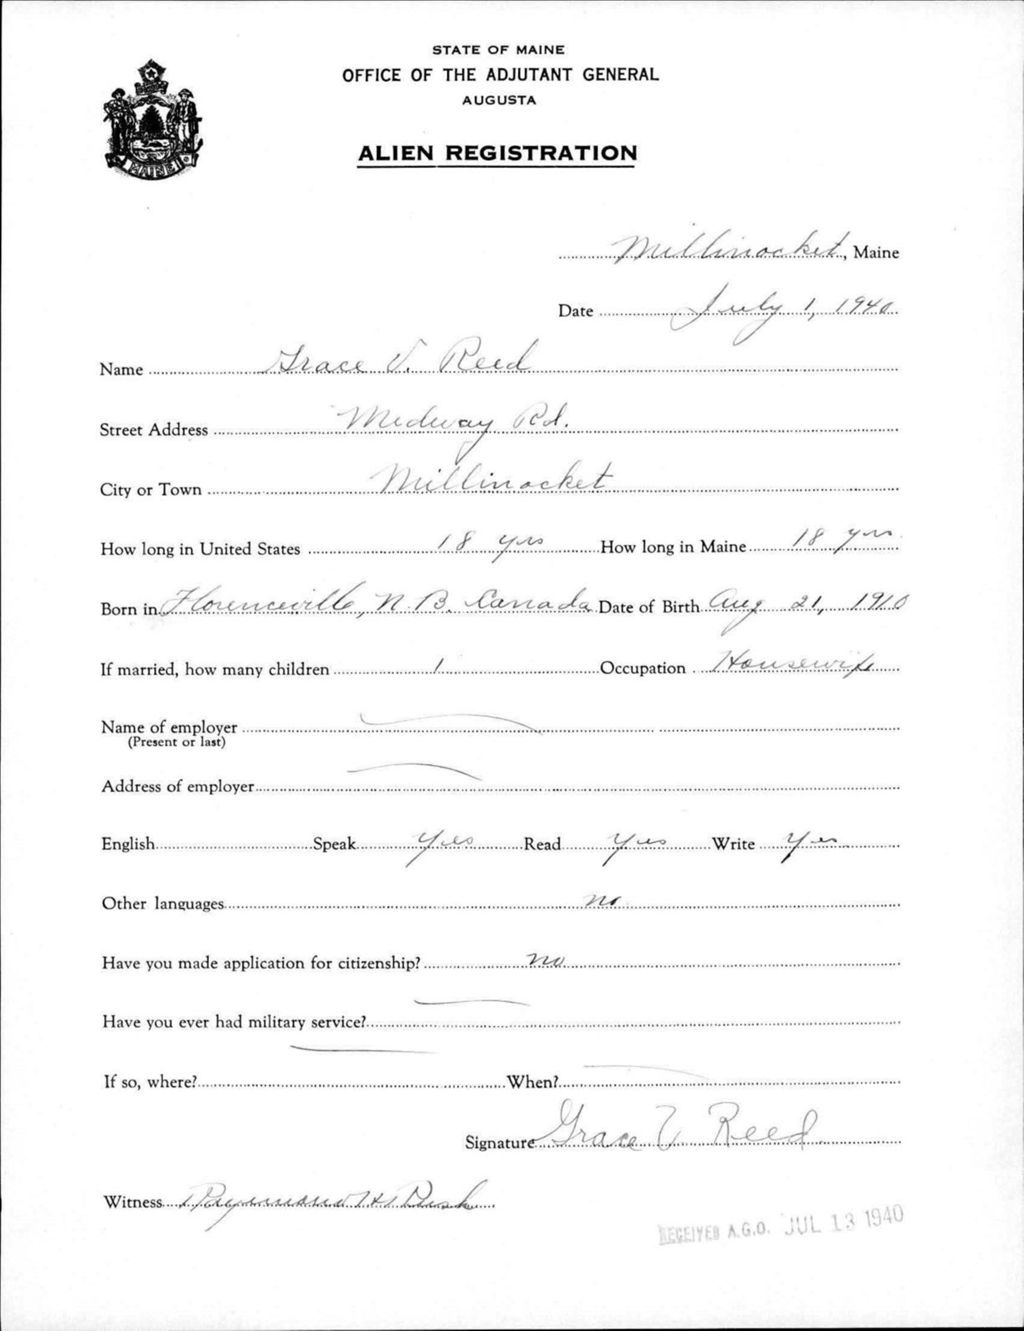 STATE OF MAINE
OFFICE OF THE ADJUTANT GENERAL
AUGUSTA
ALIEN REGISTRATION
MAINE
Millinocket, Maine
Date July 1, 1940
Name Grace V. Reed
Street Address Medway Rd.
City or Town Millinocket
How long in United States 18 yrs How long in Maine 18 yrs
Born in Florenceville, N.B. Canada Date of Birth Aug 21, 1910
If married, how many children 1 Occupation Housewife
Name of employer
(Present or last)
Address of employer
English Speak Yes Read Yes Write Yes
Other languages no
Have you made application for citizenship? no
Have you ever had military service?
If so, where? When?
Signature Grace V Reed
Witness Raymond H
RECEIVED A.G.O. JUL 13 1940